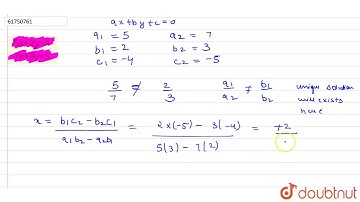 61750761
ax+by+c=0
a₁ = 5 a₂ = 7
b₁ = 2 b₂ = 3
c₁ = -4 c₂ = -5
5/7 ≠ 2/3 a₁/a₂ ≠ b₁/b₂ unique solution
will exists
here
x = (b₁c₂ - b₂c₁)/(a₁b₂ - a₂b₁) = (2×(-5) - 3(-4))/(5(3) - 7(2)) = +2/
doubtnut